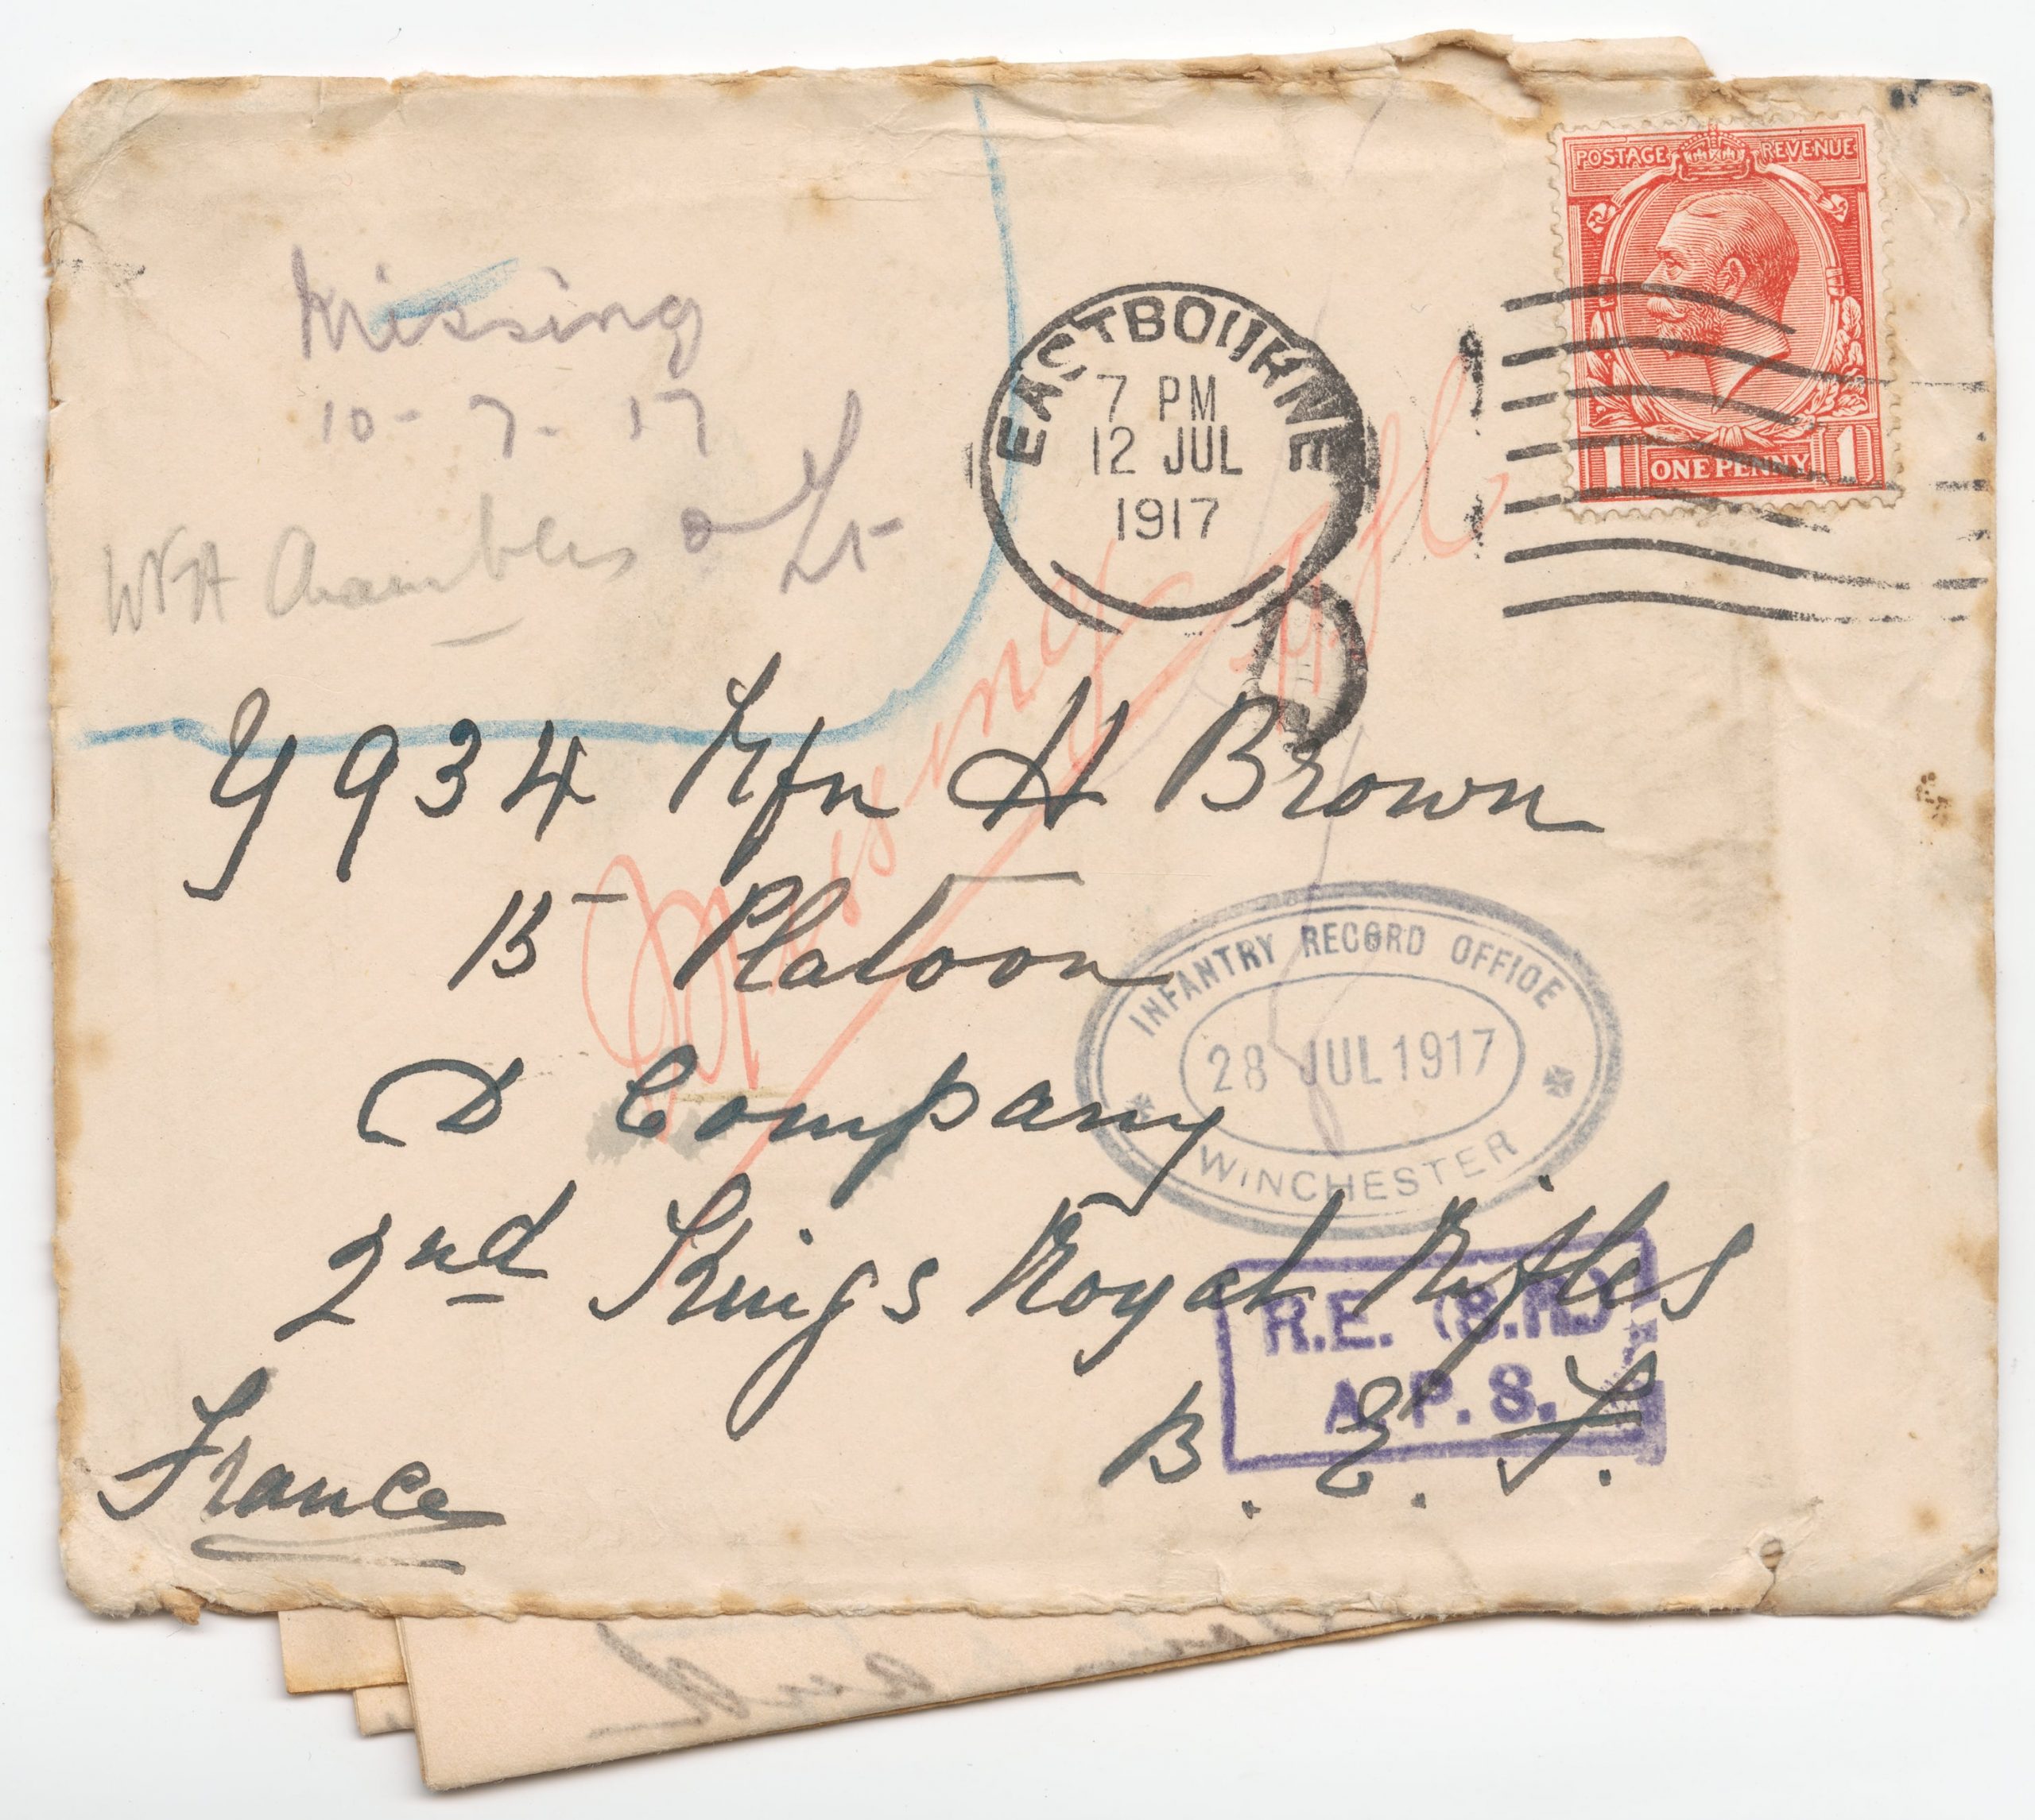 POSTAGE REVENUE
1 ONE PENNY 1
Missing
10 - 7 - 17
Chambers Lt
EASTBOURNE
7 PM
12 JUL
1917
Missing
Y 934 Rfn H Brown
B Platoon
D Company
2nd Kings Royal Rifles
B. E. F.
France
INFANTRY RECORD OFFICE
28 JUL 1917
WINCHESTER
R.E.
A.P.S.